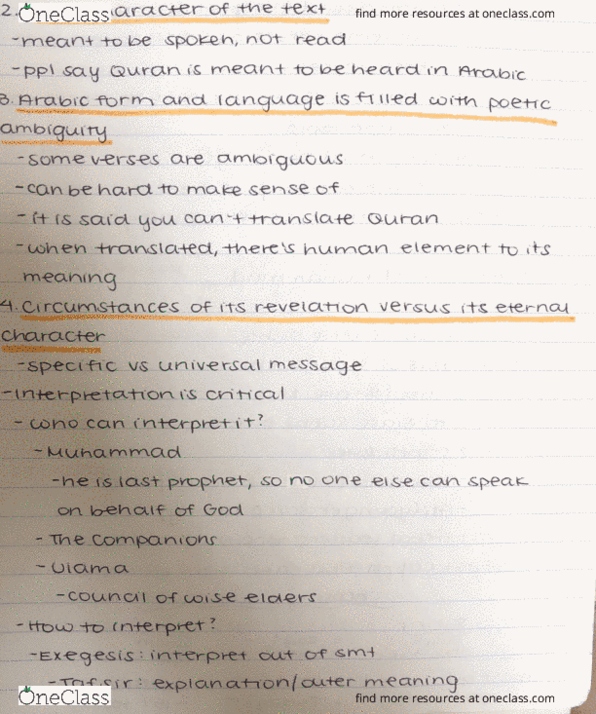 2. OneClass aracter of the text find more resources at oneclass.com
-meant to be spoken, not read
-ppl say Quran is meant to be heard in Arabic
3. Arabic form and language is filled with poetic
ambiguity
-some verses are ambiguous
-can be hard to make sense of
-it is said you can't translate Quran
-when translated, there's human element to its
meaning
4. Circumstances of its revelation versus its eternal
character
-specific vs universal message
-Interpretation is critical
- who can interpret it?
-Muhammad
-he is last prophet, so no one else can speak
on behalf of God
- The Companions
- Ulama
-council of wise elders
-How to interpret?
-Exegesis: interpret out of smt
-Tafsir: explanation/outer meaning
OneClass find more resources at oneclass.com